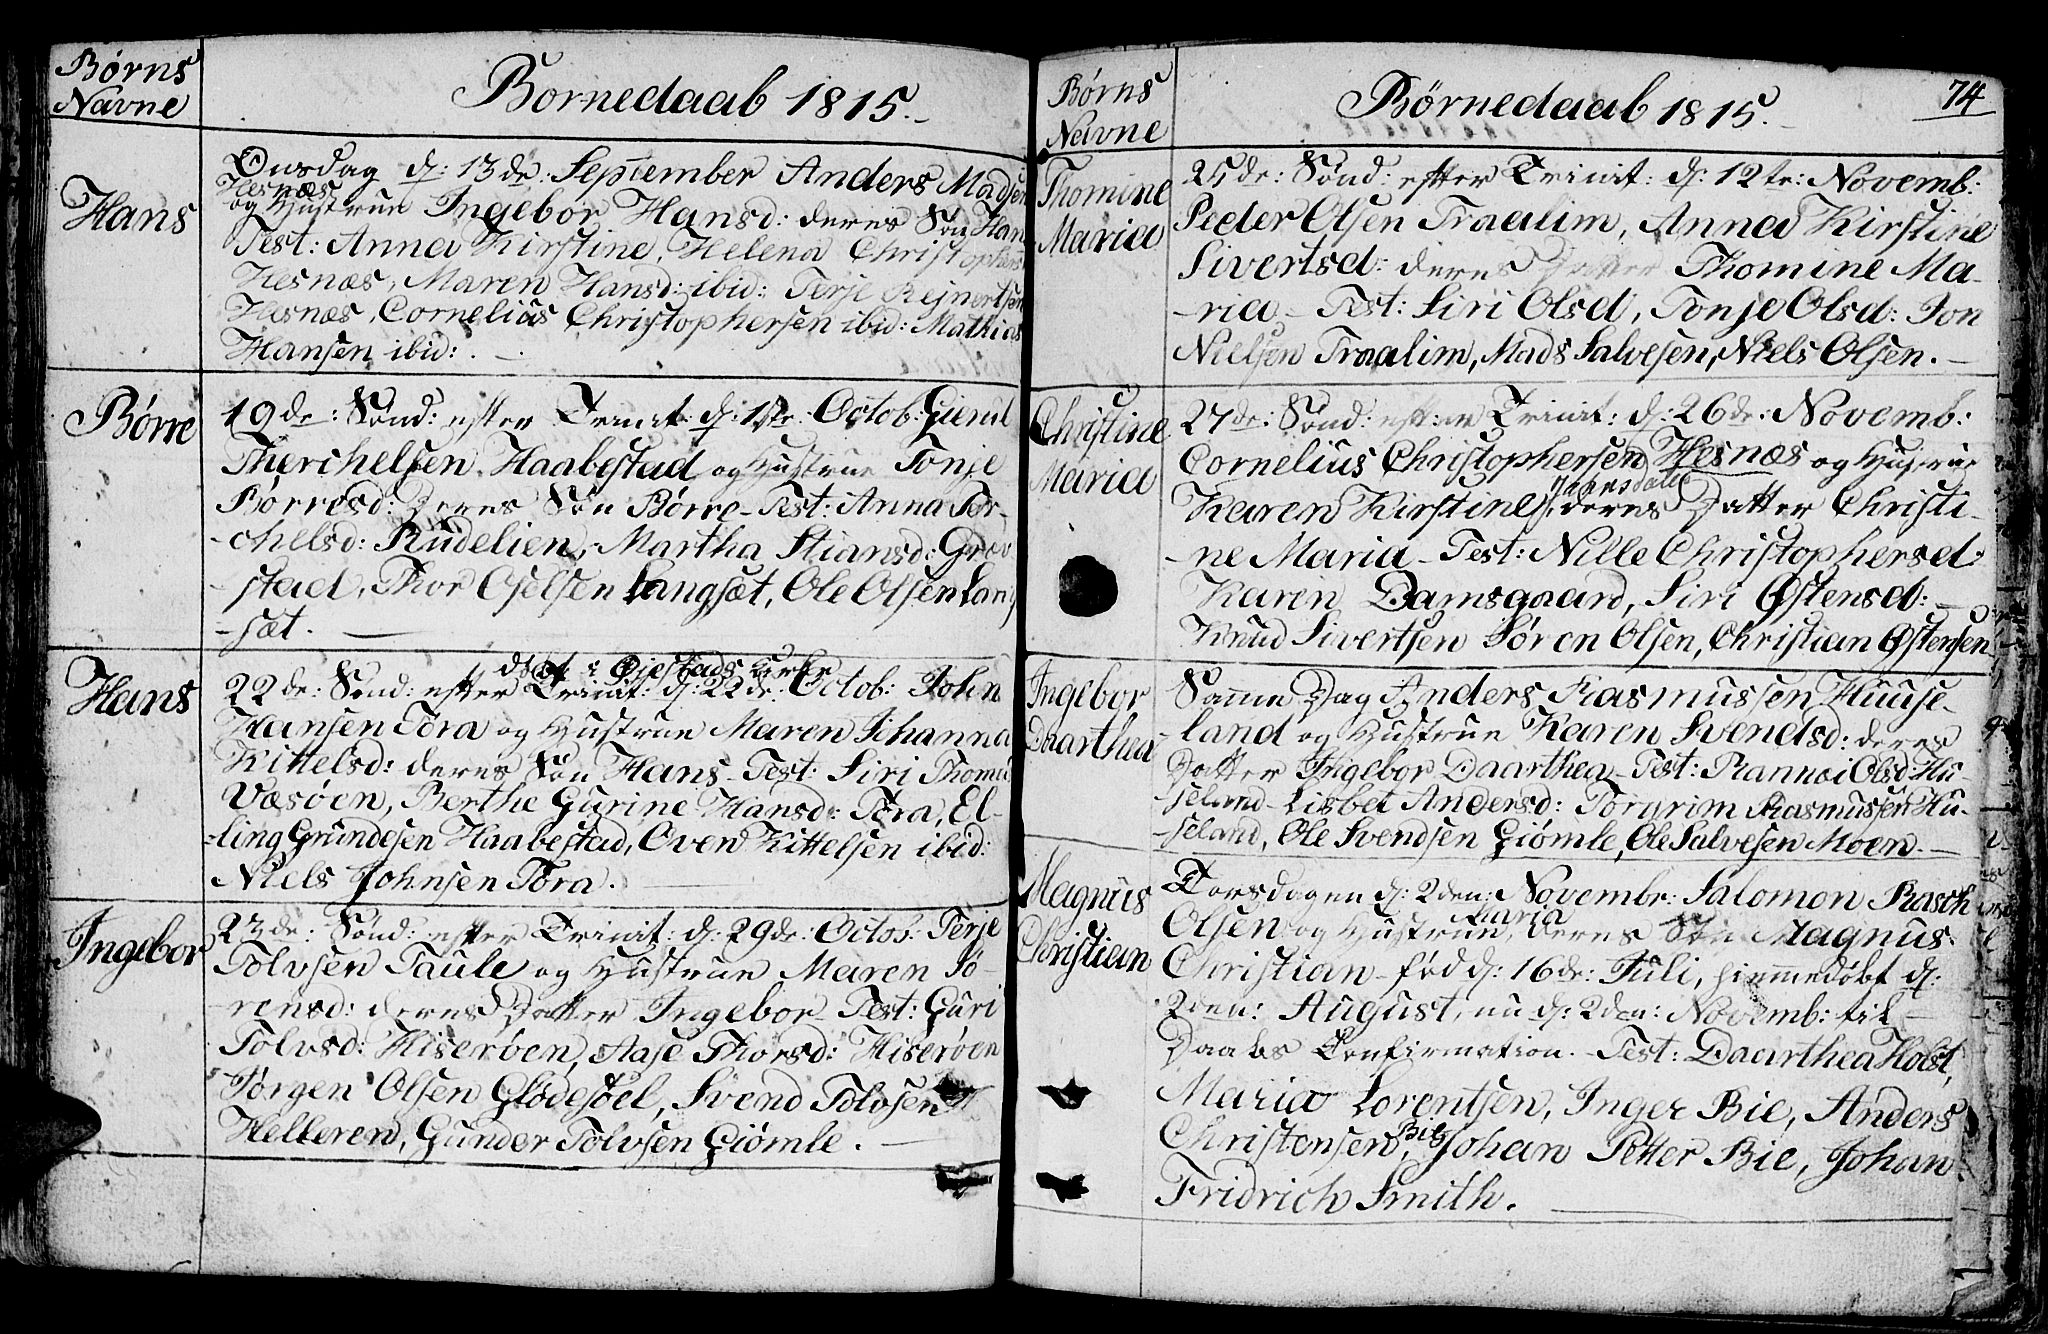 Børns
Navne
Bornedaab 1815.
Hans
Onsdag d: 13de: September Anders Madsen
Hesnæs
og Hustrue Ingebor Hansd: deres Søn Hans
Test: Anna Kirstine, Helena Christophers
Hesnæs, Maren Hansd: ibid: Terje Rejnertsen
Hesnæs, Cornelius Christophersen ibid: Mathias
Hansen ibid:.
Børre
19de: Sønd: efter Trinit: d: 1ste: Octob:
Therchelsen Haabestad og Hustrue Tonje
Børresd: deres Søn Børre - Test: Anna Ter-
-chelsd: Rudelien, Martha Stiansd: Grøv
-stad, Thor Ofelsen Langsæt, Ole Olsen Lang
-sæt.
Hans
døbt i Øiestads Kirke
22de: Sønd: efter Trinit: d: 22de: Octob: John
Hansen Tora og Hustrue Maren Johanna
Kittelsd: deres Søn Hans - Test: Siri Thoms
Væsøen, Berthe Gurine Hansd: Tora, El-
-ling Grundesen Haabestad, Oven Kittelsen ibid:
Niels Johnsen Tora.
Ingebor
23de: Sønd: efter Trinit: d: 29de: Octob: Terje
Tolvsen Taule og Hustrue Maren Sø-
rensd: deres Datter Ingebor Test: Guri
Tolvsd: Hiserøen, Aase Thorsd: Hiserøen
Jørgen Olsen Glødesøel, Svend Tolvsen
Helleren, Gunder Tolvsen Giømle.
Børns
Navne
Børnedaab 1815.
74
Thomine
Maria
25de: Sønd: efter Trinit: d: 12te: Novemb:
Peder Olsen Traalim, Anna Kirstine
Sivertsd: deres Datter Thomine Ma-
-ria - Test: Siri Olsd, Tonje Olsd: Jon
Nielsen Traalim, Mads Salvesen, Niels Olsen.
Christine
Maria
27de: Sønd: efter Trinit: d: 26de: Novemb:
Cornelius Christophersen Hesnæs og Hustrue
Hansdatter
Karen Kirstine, deres Datter Christi-
-ne Maria - Test: Nille Christophersd:
Karen Damsgaard, Siri Østensd:
Knud Sivertsen Søren Olsen, Christian Østensen
Ingebor
Daarthea
Samme Dag Anders Rasmussen Huuse-
-land og Hustrue Karen Svendsd: deres
Datter Ingebor Daarthea - Test: Rannei Olsd: Hu-
-seland - Lisbet Andersd: Torgrim Rasmussen Hu-
-seland, Ole Svendsen Giømle, Ole Salvesen Moen.
Magnus
Christian
Torsdagen d: 2den: Novembr: Salomon Rasch
Olsen og Hustrue Maria, deres Søn Magnus
Christian - fød d: 16de: Juli, hiemmedøbt d:
2den: August, nu d: 2den: Novemb: til
Daabs Confirmation. - Test: Daarthea Holst,
Maria Lorentsen, Inger Bie, Anders
Christensen Bie, Johan Petter Bie, Johan
Fridrich Smith.